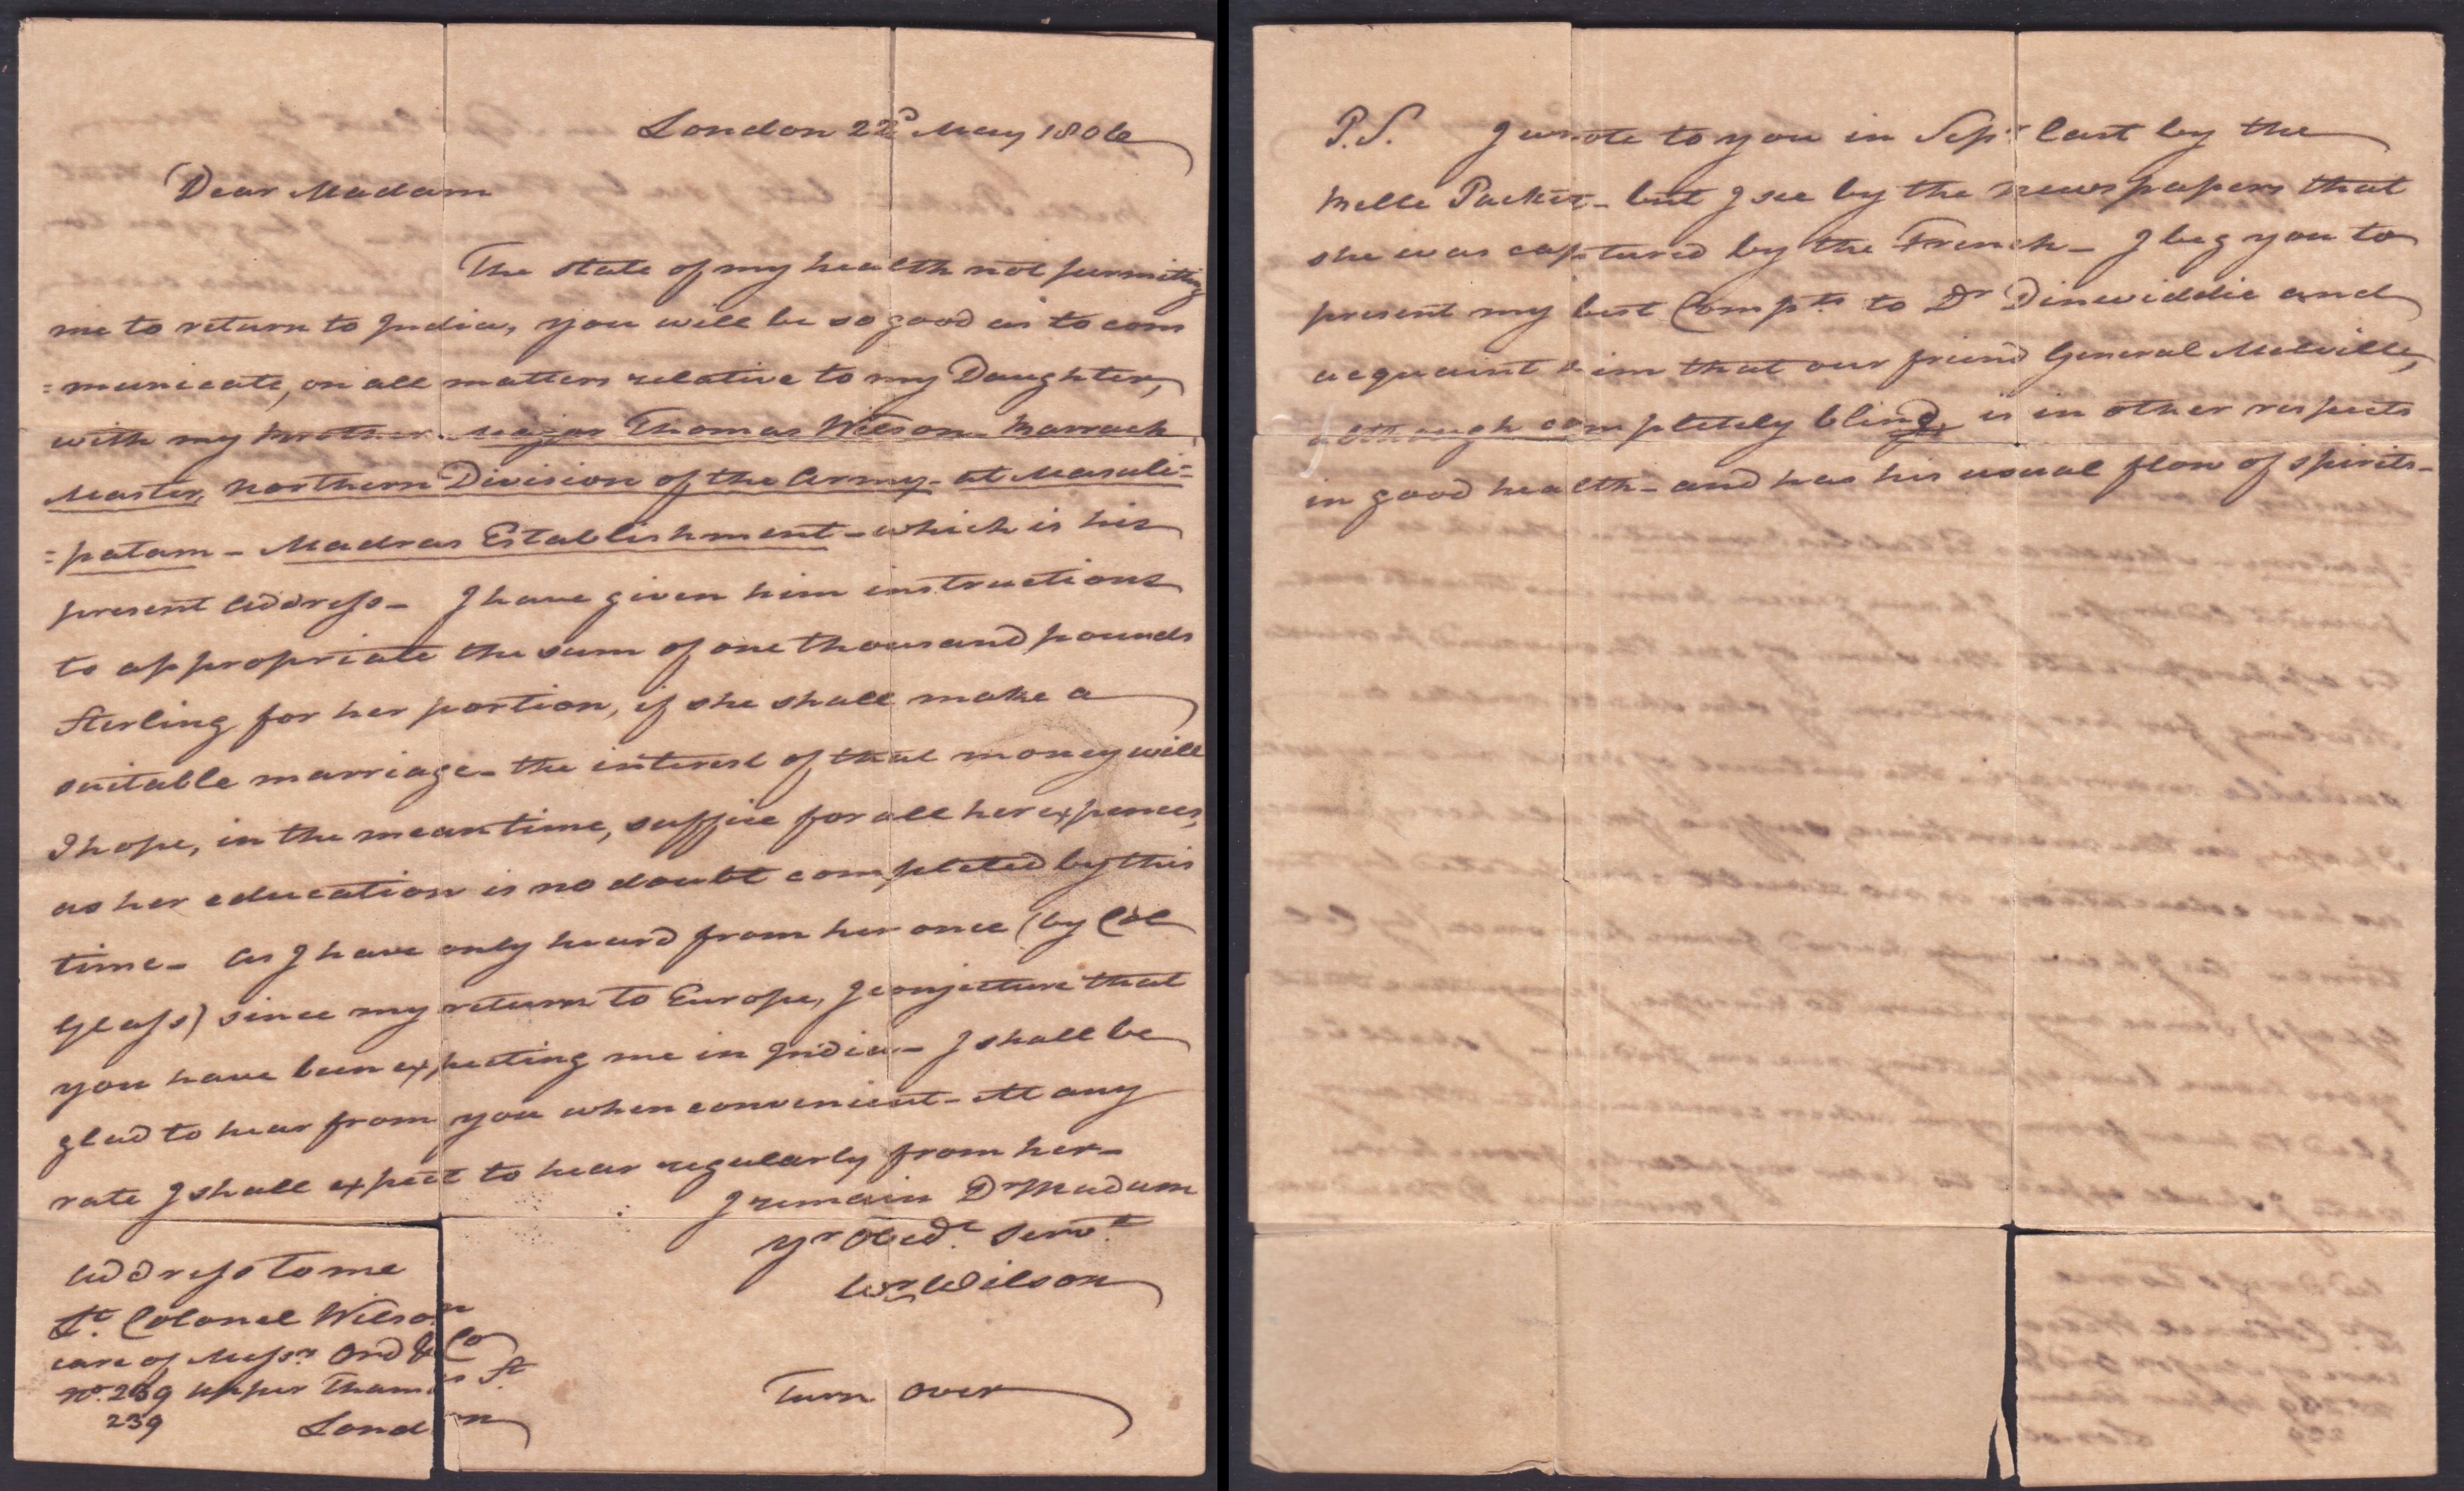 London 22d May 1806
Dear Madam
The state of my health not permitting
me to return to India, you will be so good as to com
=municate, on all matters relative to my Daughter,
with my Brother Major Thomas Wilson Barrack
Master, Northern Division of the Army - at Masuli=
=patam - Madras Establishment - which is his
present address - I have given him instructions
to appropriate the sum of one thousand pounds
Sterling for her portion, if she shall make a
suitable marriage - the interest of that money will
I hope, in the mean time, suffice for all her expences,
as her education is no doubt completed by this
time - As I have only heard from her once (by Col
Glass) since my return to Europe, I conjecture that
you have been expecting me in India - I shall be
glad to hear from you when convenient - At any
rate I shall expect to hear regularly from her -
I remain Dr Madam
yr Obedt. Servt.
Wm Wilson
Address to me
Lt. Colonel Wilson
care of Messrs Ord & Co
No. 239 Upper Thames St.
239 London
Turn Over
P.S. I wrote to you in Sept. last by the
Belle Packet - but I see by the newspapers that
she was captured by the French - I beg you to
present my best Compts. to Dr Dinwiddie and
acquaint him that our friend General Melville,
although completely blind, is in other respects
in good health - and has his usual flow of spirits -